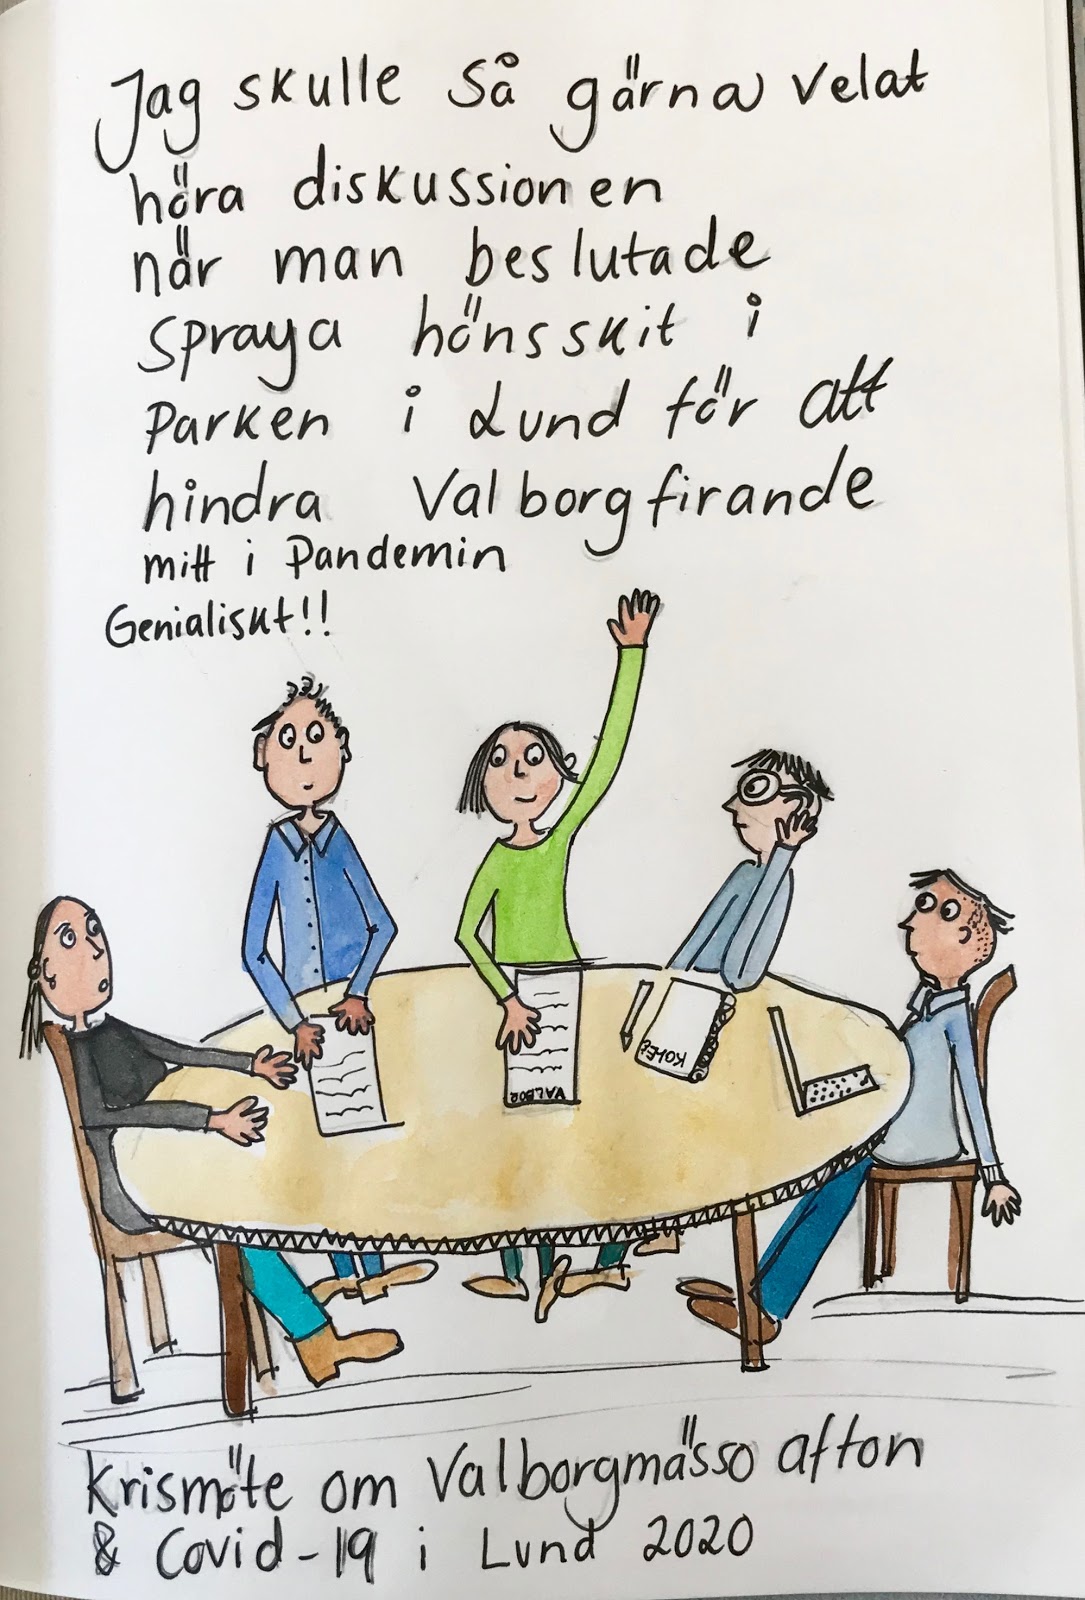 Jag skulle så gärna velat
höra diskussionen
när man beslutade
spraya hönsskit i
Parken i Lund för att
hindra Valborgfirande
mitt i Pandemin
Genialiskt!!
VALBOR
Krismöte om Valborgmässo afton
& Covid-19 i Lund 2020